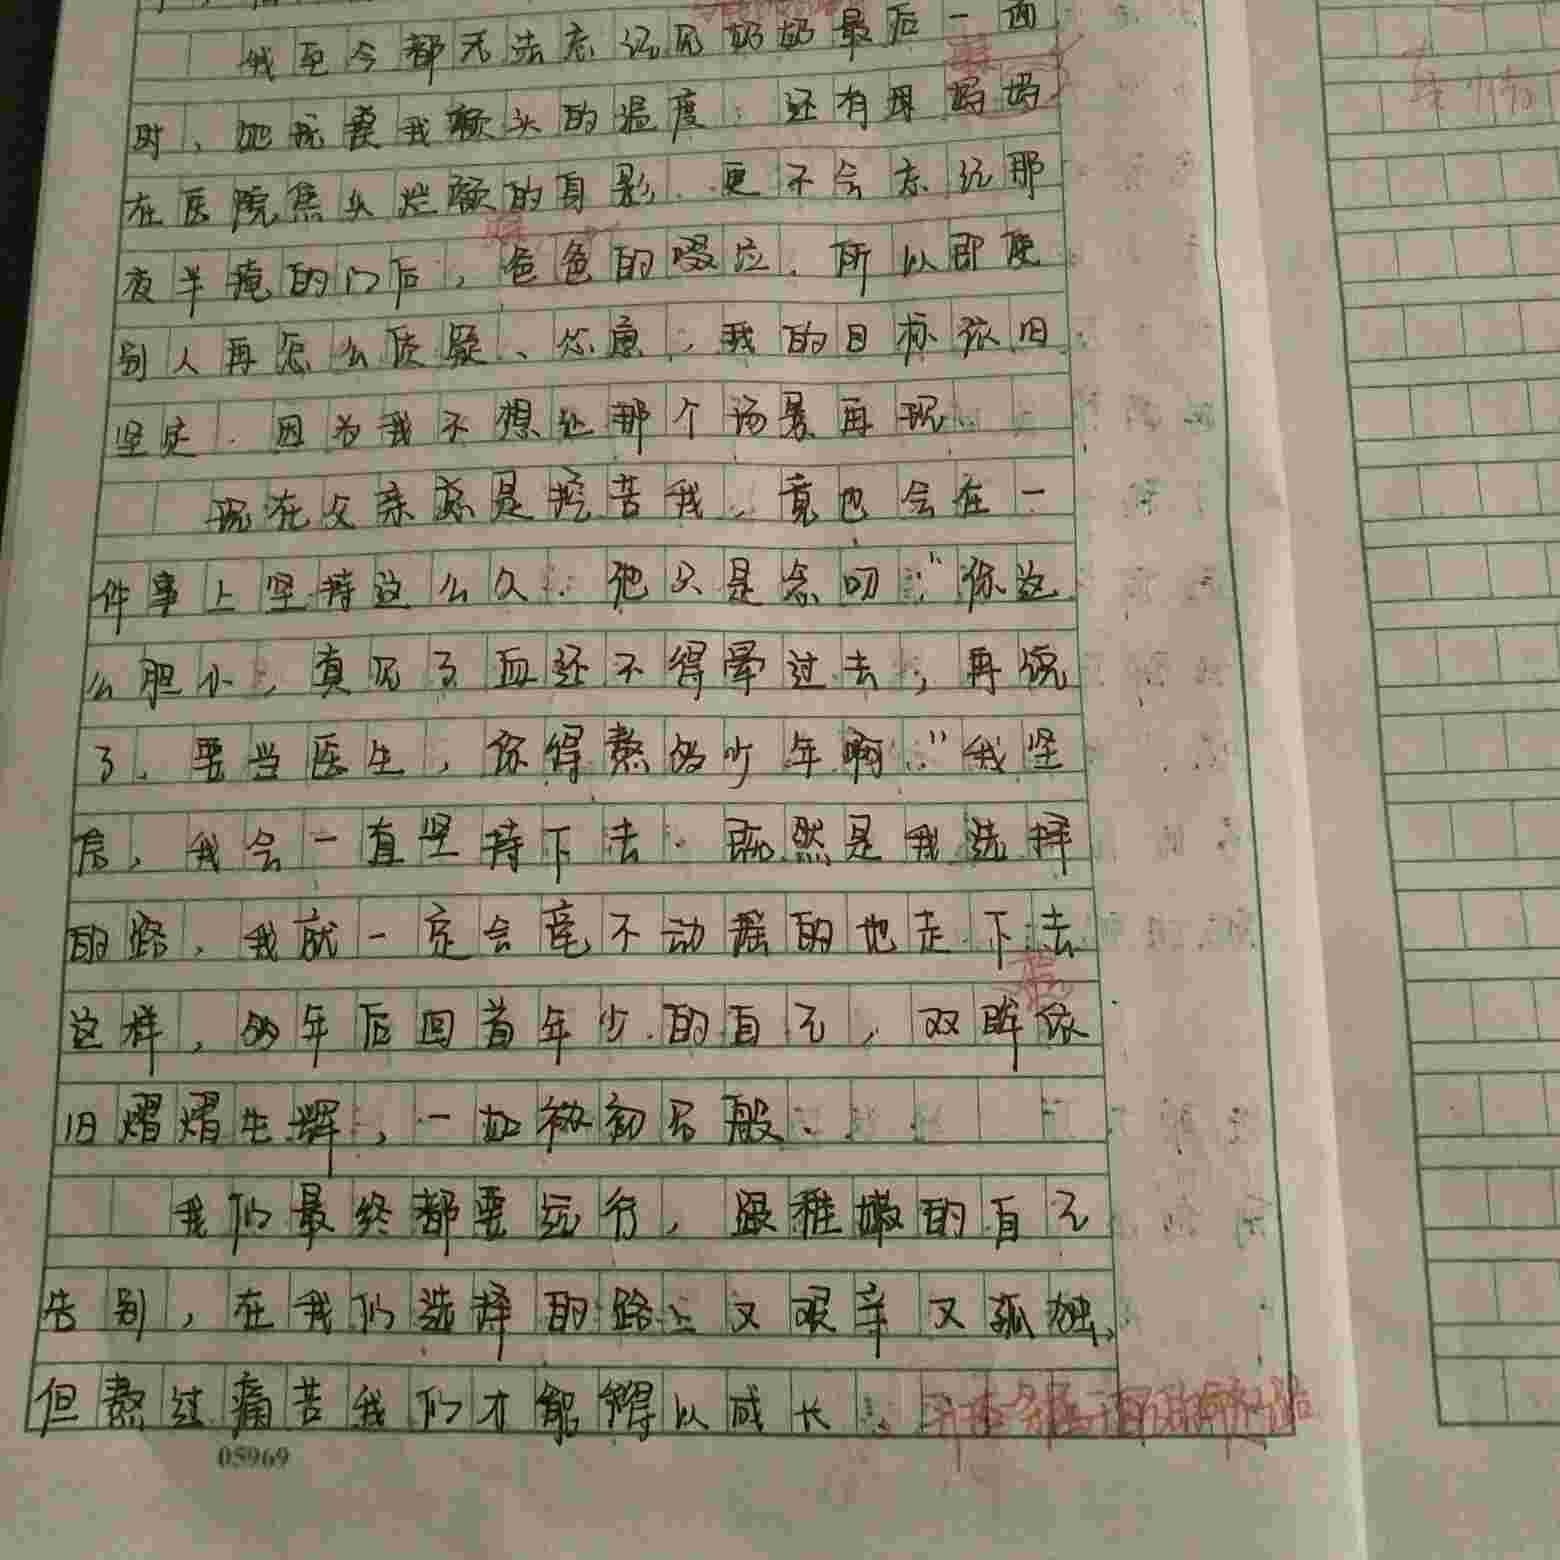 我至今都无法忘记见奶奶最后一面
时，她抚摸我额头的温度。还有母妈妈
在医院焦头烂额的身影。更不会忘记那
夜半掩的门后，爸爸的啜泣。所以即使
别人再怎么质疑、忧虑，我的目标依旧
坚定。因为我不想让那个场景再现。
现在父亲总是挖苦我，竟也会在一
件事上坚持这么久。他只是念叨：“你这
么胆小，真见了血还不得晕过去，再说
了，要当医生，你得熬多少年啊。”我坚
信，我会一直坚持下去。既然是我选择
的路，我就一定会毫不动摇的地走下去
这样，多年后回首年少的自己，双眸依
旧熠熠生辉，一如初见般。
我们最终都要远行，跟稚嫩的自己
告别，在我们选择的路上又艰辛又孤独，
但熬过痛苦我们才能得以成长。
05969